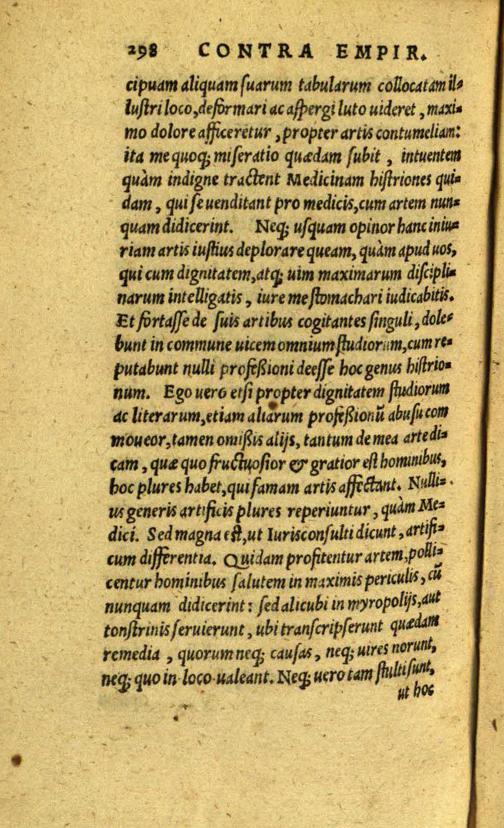 298 CONTRA EMPIR.
cipuam aliquam suarum tabularum collocatam il-
lustri loco, deformari ac aspergi luto uideret, maxi-
mo dolore afficeretur, propter artis contumeliam:
ita me quoq; miseratio quædam subit, intuentem
quàm indigne tractent Medicinam histriones qui-
dam, qui se uenditant pro medicis, cum artem nun-
quam didicerint. Neq; usquam opinor hanc iniu-
riam artis iustius deplorare queam, quàm apud uos,
qui cum dignitatem, atq; uim maximarum discipli-
narum intelligatis, iure me stomachari iudicabitis.
Et fortasse de suis artibus cogitantes singuli, dole-
bunt in commune uicem omnium studiorum, cum re-
putabunt nulli professioni deesse hoc genus histrio-
num. Ego uero etsi propter dignitatem studiorum
ac literarum, etiam aliarum professionũ abusu com
moueor, tamen omissis alijs, tantum de mea arte di-
cam, quæ quo fructuosior & gratior est hominibus,
hoc plures habet, qui famam artis affectant. Nulli-
us generis artificis plures reperiuntur, quàm Me-
dici. Sed magna est, ut Iurisconsulti dicunt, artifi-
cum differentia. Quidam profitentur artem, polli-
centur hominibus salutem in maximis periculis, cũ
nunquam didicerint: sed alicubi in myropolijs, aut
tonstrinis seruierunt, ubi transcripserunt quædam
remedia, quorum neq; causas, neq; uires norunt,
neq; quo in loco ualeant. Neq; uero tam stulti sunt,
ut hoc